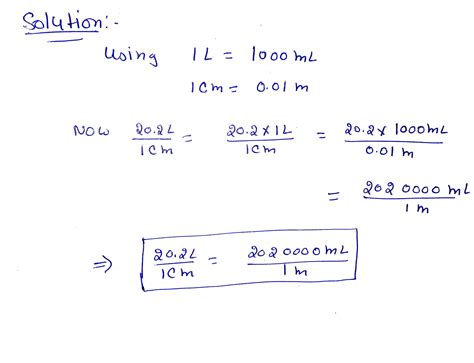 Solution:-
Using 1L = 1000 mL
1cm = 0.01 m
Now 20.2L/1cm = 20.2×1L/1cm = 20.2×1000mL/0.01 m
= 2020000 mL/1m
⇒ 20.2L/1cm = 2020000 mL/1m